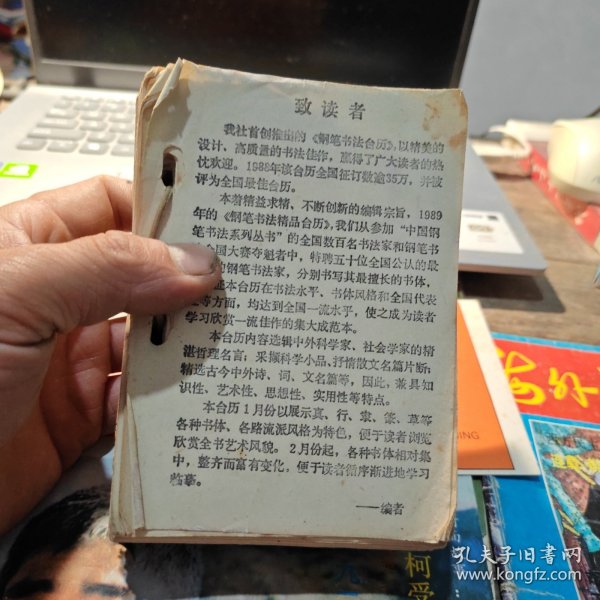 致读者
我社首创推出的《钢笔书法台历》,以精美的
设计、高质量的书法佳作,赢得了广大读者的热
忱欢迎。1988年该台历全国征订数逾35万,并被
评为全国最佳台历。
本着精益求精、不断创新的编辑宗旨,1989
年的《钢笔书法精品台历》,我们从参加“中国钢
笔书法系列丛书”的全国数百名书法家和钢笔书
全国大赛夺魁者中,特聘五十位全国公认的最
的钢笔书法家,分别书写其最擅长的书体,
证本台历在书法水平、书体风格和全国代表
等方面,均达到全国一流水平,使之成为读者
学习欣赏一流佳作的集大成范本。
本台历内容选辑中外科学家、社会学家的精
湛哲理名言;采撷科学小品、抒情散文名篇片断;
精选古今中外诗、词、文名篇等,因此,兼具知
识性、艺术性、思想性、实用性等特点。
本台历1月份以展示真、行、隶、篆、草等
各种书体、各路流派风格为特色,便于读者浏览
欣赏全书艺术风貌。2月份起,各种书体相对集
中,整齐而富有变化,便于读者循序渐进地学习
临摹。
——编者
海外
ING
柯受
孔夫子旧书网
www.kongfz.com